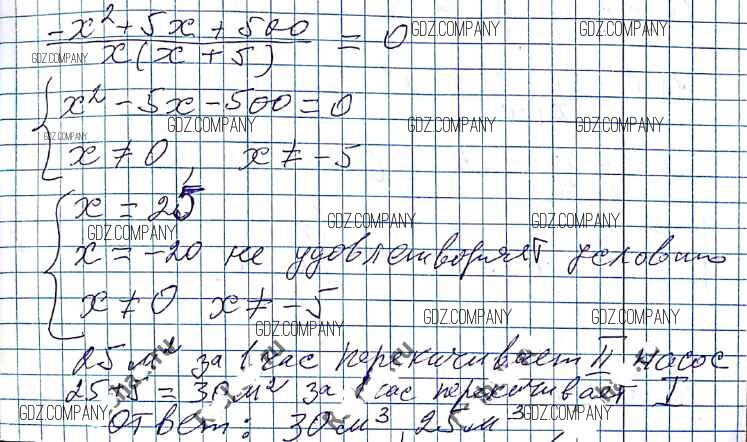 -x² + 5x + 500 / x(x + 5) = 0
x² - 5x - 500 = 0
x ≠ 0, x ≠ -5
x = 25
x = -20 не удовлетворяет условию
x ≠ 0 x ≠ -5
25 м³ за 1 час перекачивает II насос
25+5 = 30 м² за 1 час перекачивает I
Ответ: 30 м³, 25 м³
GDZ.COMPANY GDZ.COMPANY
GDZ.COMPANY
GDZ.COMPANY GDZ.COMPANY GDZ.COMPANY
GDZ.COMPANY
GDZ.COMPANY GDZ.COMPANY GDZ.COMPANY
GDZ.COMPANY GDZ.COMPANY
GDZ.COMPANY GDZ.COMPANY GDZ.COMPANY